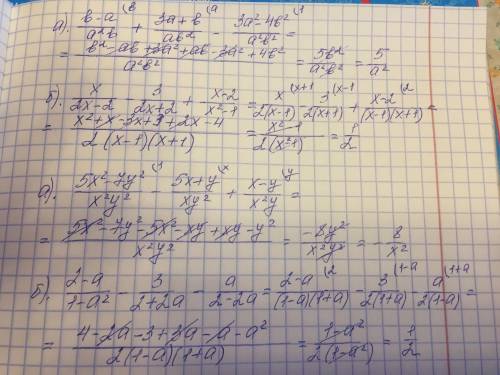 а). (в-а)/(а²в) ⁽ᵇ + (3а+в)/(ав²) ⁽ᵃ - (3а²-4в²)/(а²в²) ⁽¹ =
= (в²-ав+3а²+ав-3а²+4в²)/(а²в²) = 5в²/(а²в²) = 5/а²
б). x/(2x-2) - 3/(2x+2) + (x-2)/(x²-1) = x/(2(x-1)) ⁽ˣ⁺¹ - 3/(2(x+1)) ⁽ˣ⁻¹ + (x-2)/((x-1)(x+1)) ⁽² =
= (x²+x-3x+3+2x-4)/(2(x-1)(x+1)) = (x²-1)/(2(x²-1)) = 1/2
а). (5x²-7y²)/(x²y²) ⁽¹ - (5x+y)/(xy²) ⁽ˣ + (x-y)/(x²y) ⁽ʸ =
= (5x²-7y²-5x²-xy+xy-y²)/(x²y²) = -8y²/(x²y²) = -8/x²
б). (2-a)/(1-a²) - 3/(2+2a) - a/(2-2a) = (2-a)/((1-a)(1+a)) ⁽² - 3/(2(1+a)) ⁽¹⁻ᵃ - a/(2(1-a)) ⁽¹⁺ᵃ =
= (4-2a-3+3a-a-a²)/(2(1-a)(1+a)) = (1-a²)/(2(1-a²)) = 1/2